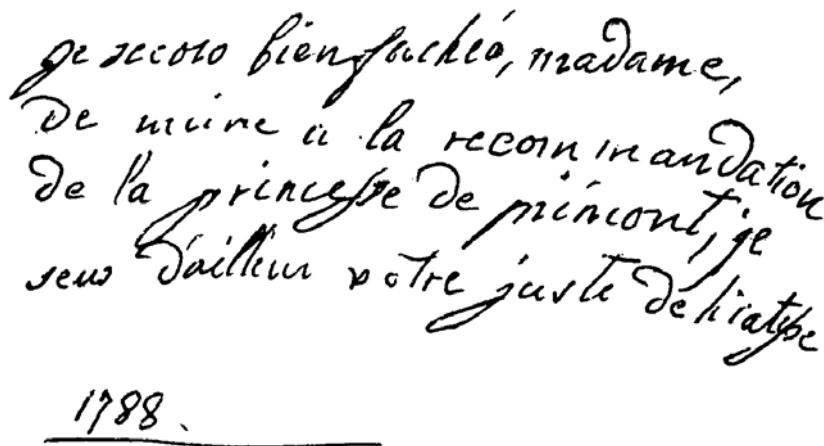 je serois bien fachéé, madame,
de nuire a la recommandation
de la princesse de piémont, je
sens d'ailleur votre juste délicatesse
1788.